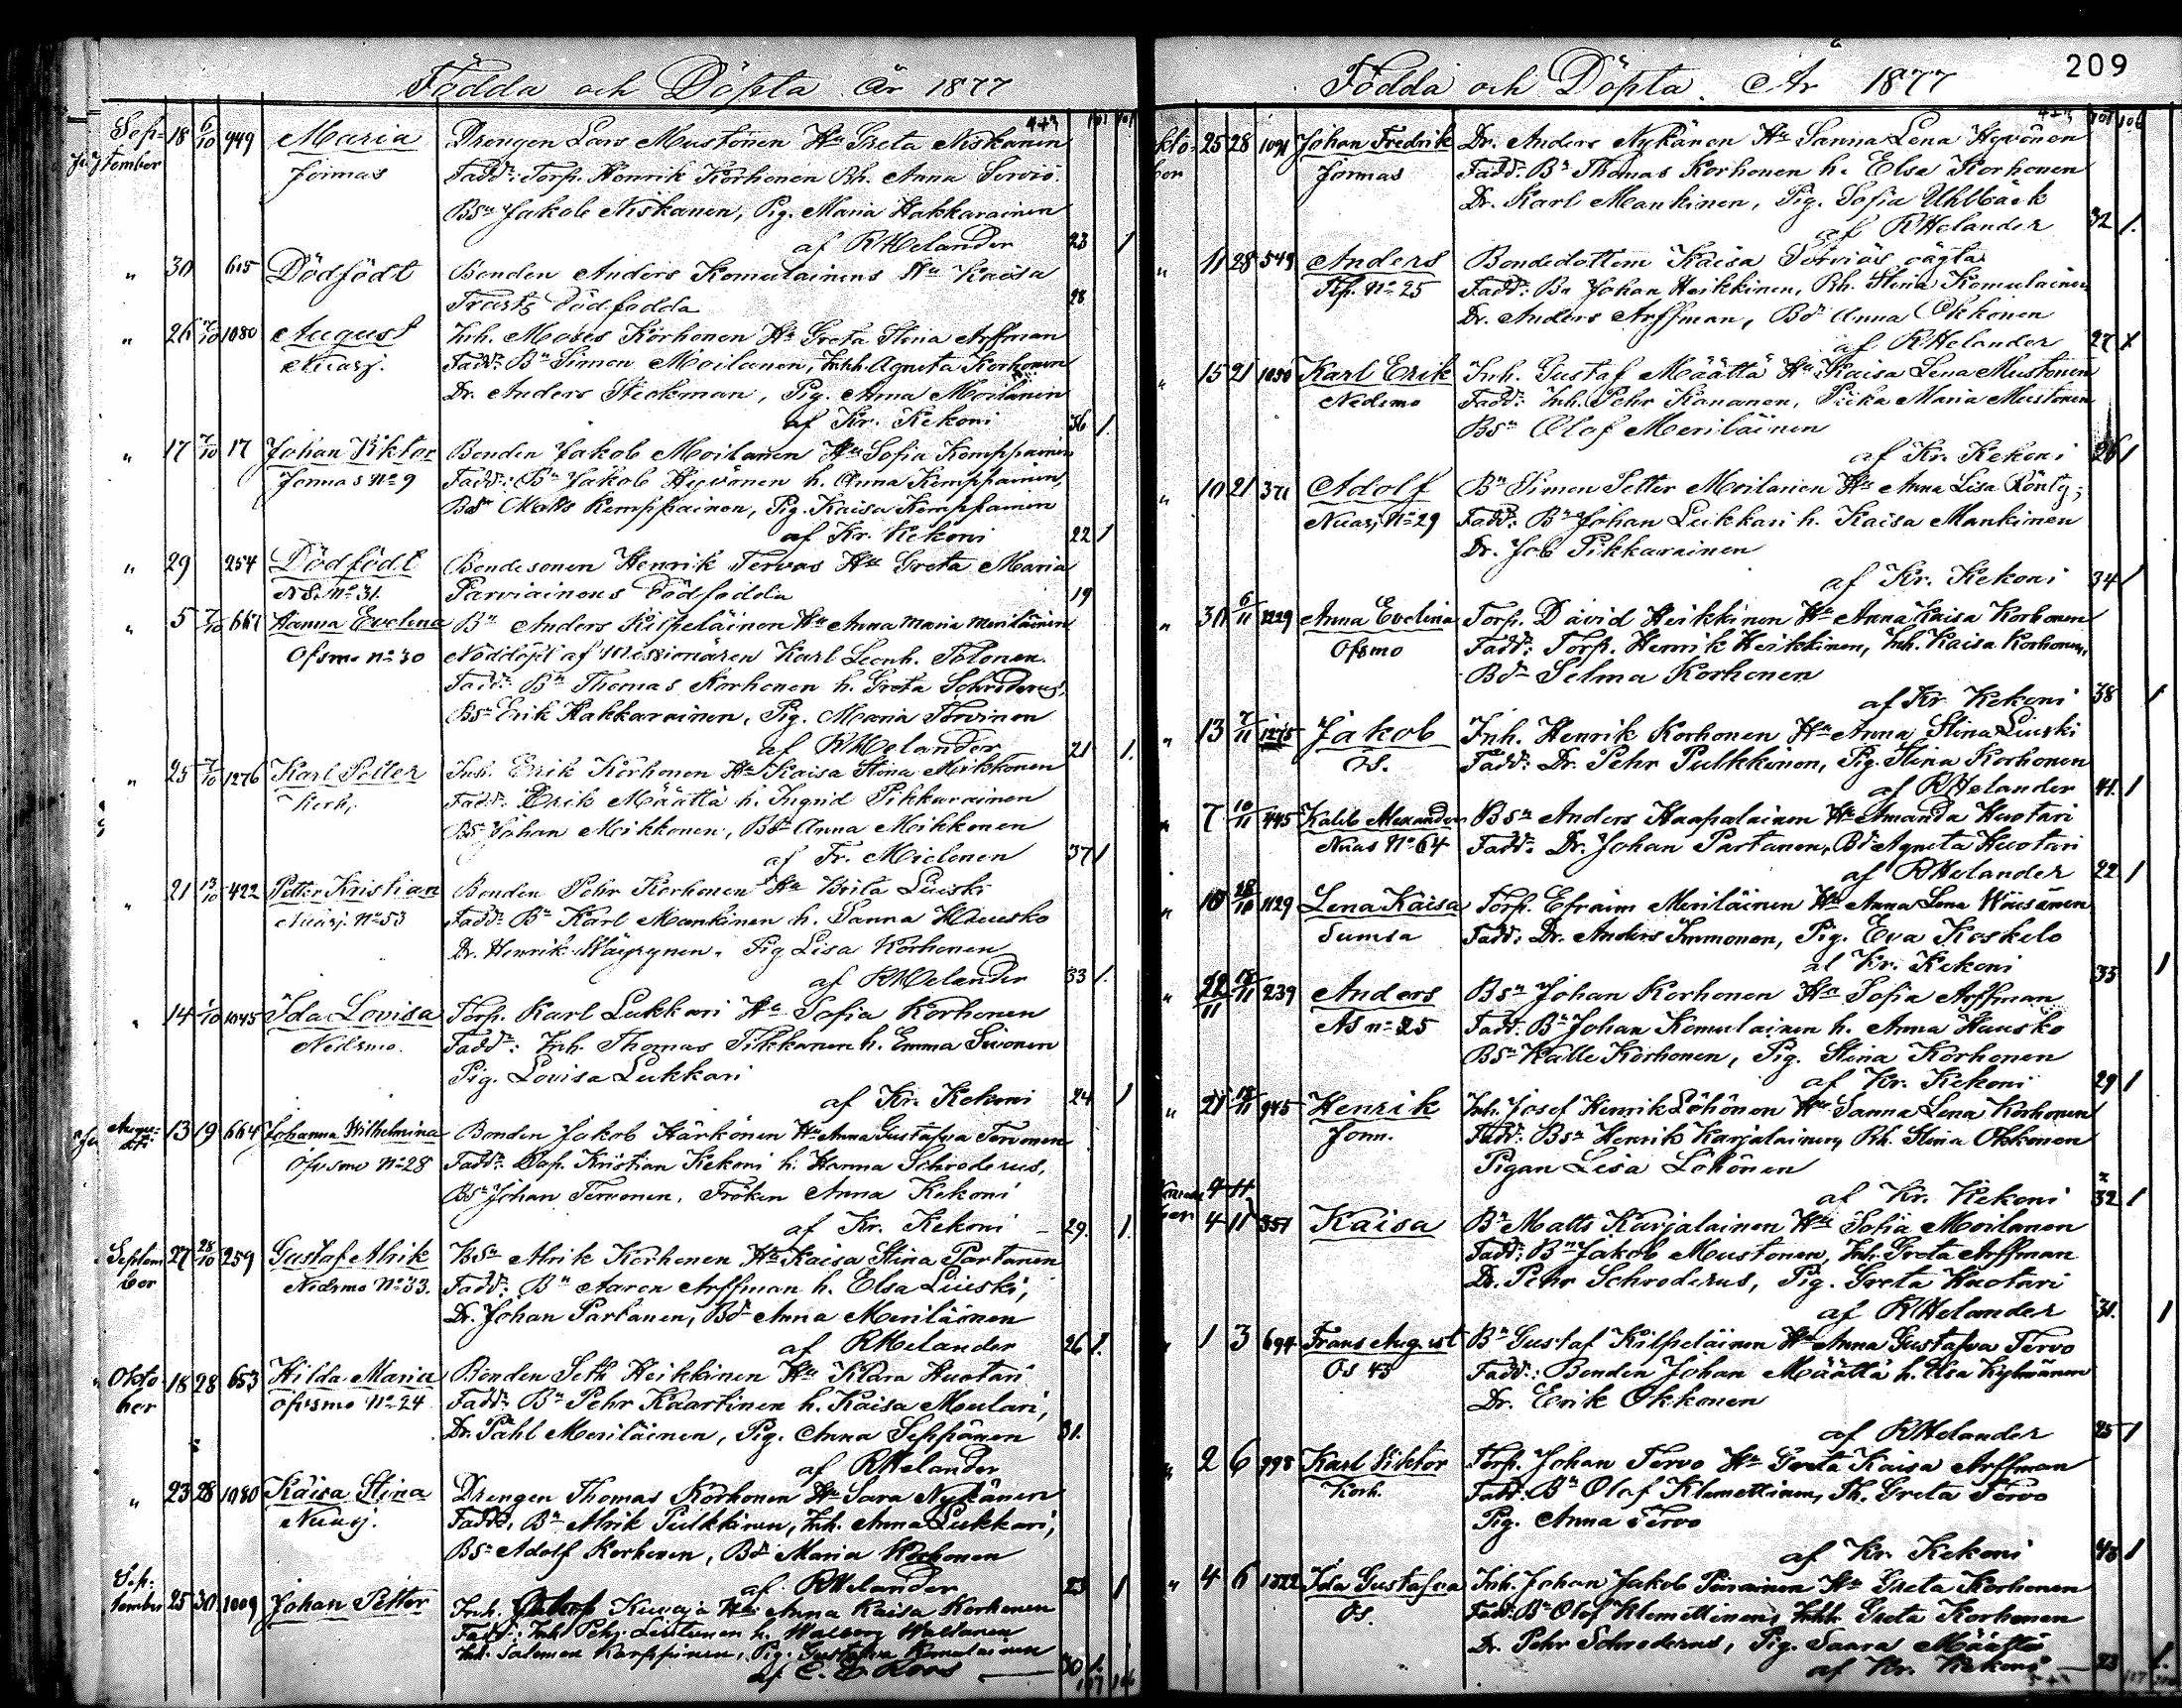 Födda och Döpta År 1877
Sep- 18 6/10 949 Maria Drengen Lars Mustonen Hu Greta Niskanen
tember Jormas Fadd: Torp. Henrik Korhonen Rh. Anna Serviö
Bsn Jakob Niskanen, Pig. Maria Hakkarainen
af RHelander 23 1
" 30 615 Dödfödt Bonden Anders Komulainens Hu Kaisa
Trasts Dödfödda 28
" 26 7/10 1080 August Inh. Moses Korhonen Hu Greta Stina Arffman
Nuasj. Fadd: Bn Simon Moilanen, Inhh. Agneta Korhonen
Dr. Anders Stickman, Pig. Anna Moilanen
af Kr. Kekoni 36 1.
" 17 7/10 17 Johan Viktor Bonden Jakob Moilanen Hu Sofia Kemppainen
Jormas No 9 Fadd: Bn Jakob Hyvönen h. Anna Kemppainen,
Bsn Matts Kemppainen, Pig. Kaisa Kemppainen
af Kr. Kekoni 22 1
" 29 254 Dödfödt Bondesonen Henrik Tervos Hu Greta Maria
NS. No 31. Parviainens Dödfödda 19
" 5 7/10 667 Hanna Evelina Bn Anders Kilpeläinen Hu Anna Maria Meriläinen
Öfsmo No 30 Nöddöpt af Missionären Karl Leonh. Tolonen.
Fadd: Bn Thomas Korhonen h. Greta Schroderus,
Bsn Erik Hakkarainen, Pig. Maria Torvinen
af RHelander 21 1.
" 25 7/10 1276 Karl Petter Inh. Erik Korhonen Hu Kaisa Stina Mikkonen
Korh. Fadd: Erik Määttä h. Ingrid Pikkarainen
Bsn Johan Moikkonen, Bdr Anna Moikkonen
af Fr. Mielonen 37 1
" 21 13/10 422 Petter Kristian Bonden Pehr Korhonen Hu Brita Liuski
Nuasj. No 53 Fadd: Bn Karl Mankinen h. Sanna Hausko
Dr. Henrik Wäyrynen, Pig Lisa Korhonen
af RHelander 33 1.
" 14 1/10 1045 Ida Lovisa Torp. Karl Lukkari Hu Sofia Korhonen
Nedsmo. Fadd: Inh. Thomas Pikkanen h. Emma Sivonen
Pig. Lovisa Lukkari
af Kr. Kekoni 24 1
Augu-sti 13 19 664 Johanna Wilhelmina Bonden Jakob Härkönen Hu Anna Gustafva Tervonen
Öfvsmo No 28 Fadd: Cap. Kristian Kekoni h. Hanna Schroderus,
Bsn Johan Tervonen, Fröken Anna Kekoni
af Kr. Kekoni 29. 1.
Septem 27 28/10 259 Gustaf Alrik Bsn Alrik Korhonen Hu Kaisa Stina Partanen
ber Nedsmo No 33. Fadd: Bn Aaron Arffman h. Elsa Liuski,
Dr. Johan Partanen, Bdr Anna Meriläinen
af RHelander 26 1.
Okto 18 28 653 Hilda Maria Bonden Seth Heikkinen Hu Klara Huotari
ber Öfvsmo No 24 Fadd: Bn Pehr Kaartinen h. Kaisa Moulari,
Dr. Påhl Meriläinen, Pig. Anna Seppänen 31.
af RHelander
" 23 28 1080 Kaisa Stina Drengen Thomas Korhonen Hu Sara Nykänen
Nuasj. Fadd: Bn Alrik Pulkkinen, Inh. Anna Lukkari,
Bsn Adolf Korhonen, Bdr Maria Korhonen
af RHelander 23 1
Sep-
tember 25 30 1009 Johan Petter Inh. Kuvaja Hu Anna Kaisa Korhonen
Fadd: Inh. Pehr h. Walborg Waldanen
Inh. Salomon Karppinen, Pig. Gustafva Komulainen
af C. E. Roos 30 1.

209
Födda och Döpta. År 1877
kto- 25 28 1091 Johan Fredrik Dr. Anders Nykänen Hu Sanna Lena Hyvönen
ber Jormas Fadd: Bn Thomas Korhonen h. Elsa Korhonen
Dr. Karl Mankinen, Pig. Sofia Uhlbäck
af RHelander 32 1.
" 11 28 549 Anders Bondedottern Kaisa Serviös oägta
No 25 Fadd: Bn Johan Heikkinen, Rh. Stina Komulainen
Dr. Anders Arffman, Bdr Anna Okkonen
af RHelander 27
" 15 21 1030 Karl Erik Inh. Gustaf Määttä Hu Kaisa Lena Mustonen
Nedsmo Fadd: Inh. Pehr Kananen, Piika Maria Mustonen
Bsn Olof Meriläinen
af Kr. Kekoni 26 1
" 10 21 371 Adolf Bn Simon Petter Moilanen Hu Anna Lisa Rönty;
Nuasj No 29 Fadd: Bn Johan Lukkari h. Kaisa Mankinen
Dr. Job Pikkarainen
af Kr. Kekoni 34 1
" 30 6/11 1229 Anna Evelina Torp. David Heikkinen Hu Anna Kaisa Korhonen
Öfsmo Fadd: Torp. Henrik Heikkinen, Inh. Kaisa Korhonen,
Bdr Selma Korhonen
af Kr. Kekoni 38 1
" 13 7/11 1275 Jakob Inh. Henrik Korhonen Hu Anna Stina Liuski
Ös. Fadd: Dr. Pehr Pulkkinen, Pig. Stina Korhonen
af RHelander 41. 1
" 7 10/11 445 Kaleb Alexander Bsn Anders Haapalainen Hu Amanda Huotari
Nuas No 64 Fadd: Dr. Johan Partanen, Bdr Agneta Huotari
af RHelander 22 1
" 10 18/10 1129 Lena Kaisa Torp. Efraim Meriläinen Hu Anna Lena Wäisänen
Sumsa Fadd: Dr. Anders Immonen, Pig. Eva Koskelo
af Kr. Kekoni 33 1
" 22/11 18/11 239 Anders Bsn Johan Korhonen Hu Sofia Arffman
NS No 25 Fadd: Bn Johan Komulainen h. Anna Hausko
Bsn Kalle Korhonen, Pig. Stina Korhonen
af Kr. Kekoni 29 1
" 21 18/11 945 Henrik Inh. Josef Henrik Löhönen Hu Sanna Lena Korhonen
Jorm. Fadd: Bsn Henrik Karjalainen, Rh. Stina Okkonen
Pigan Lisa Löhönen
af Kr. Kekoni 32 1
ber 4 11 351 Kaisa Bn Matts Karjalainen Hu Sofia Moilanen
Fadd: Bn Jakob Mustonen, Inh. Greta Arffman
Dr. Pehr Schroderus, Pig. Greta Huotari
af RHelander 31. 1
" 1 3 694 Frans August Bn Gustaf Kilpeläinen Hu Anna Gustafva Tervo
Ös 43 Fadd: Bonden Johan Määttä h. Elsa Kylmänen
Dr. Erik Okkonen
af RHelander 25 1
" 2 6 998 Karl Viktor Torp. Johan Tervo Hu Greta Kaisa Arffman
Korh. Fadd: Bn Olof Klemettinen, Th. Greta Tervo
Pig. Anna Tervo
af Kr. Kekoni 43 1
" 4 6 1322 Ida Gustafva Inh. Johan Jakob Piirainen Hu Greta Korhonen
Ös. Fadd: Bn Olof Klemettinen, Inhh. Greta Korhonen
Dr. Pehr Schroderus, Pig. Saara Määttä
af Kr. Kekoni 23 1.